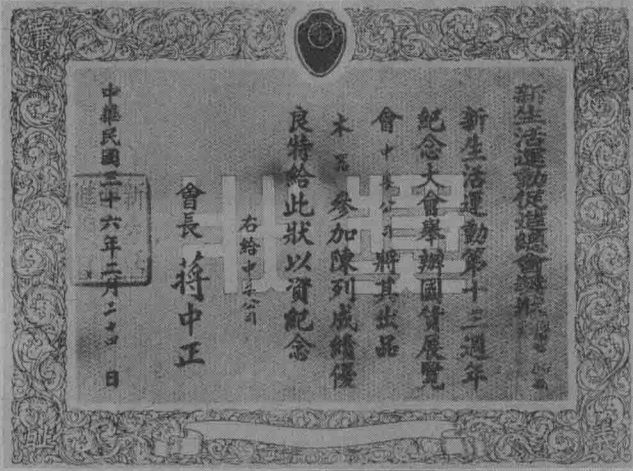 新生活運動促進總會獎狀
新生活運動第十三週年
紀念大會舉辦國貨展覽
會中美公司將其出品
木器參加陳列成績優
良特給此狀以資紀念
右給中美公司
會長 蔣中正
中華民國三十六年二月二十四日
獎狀